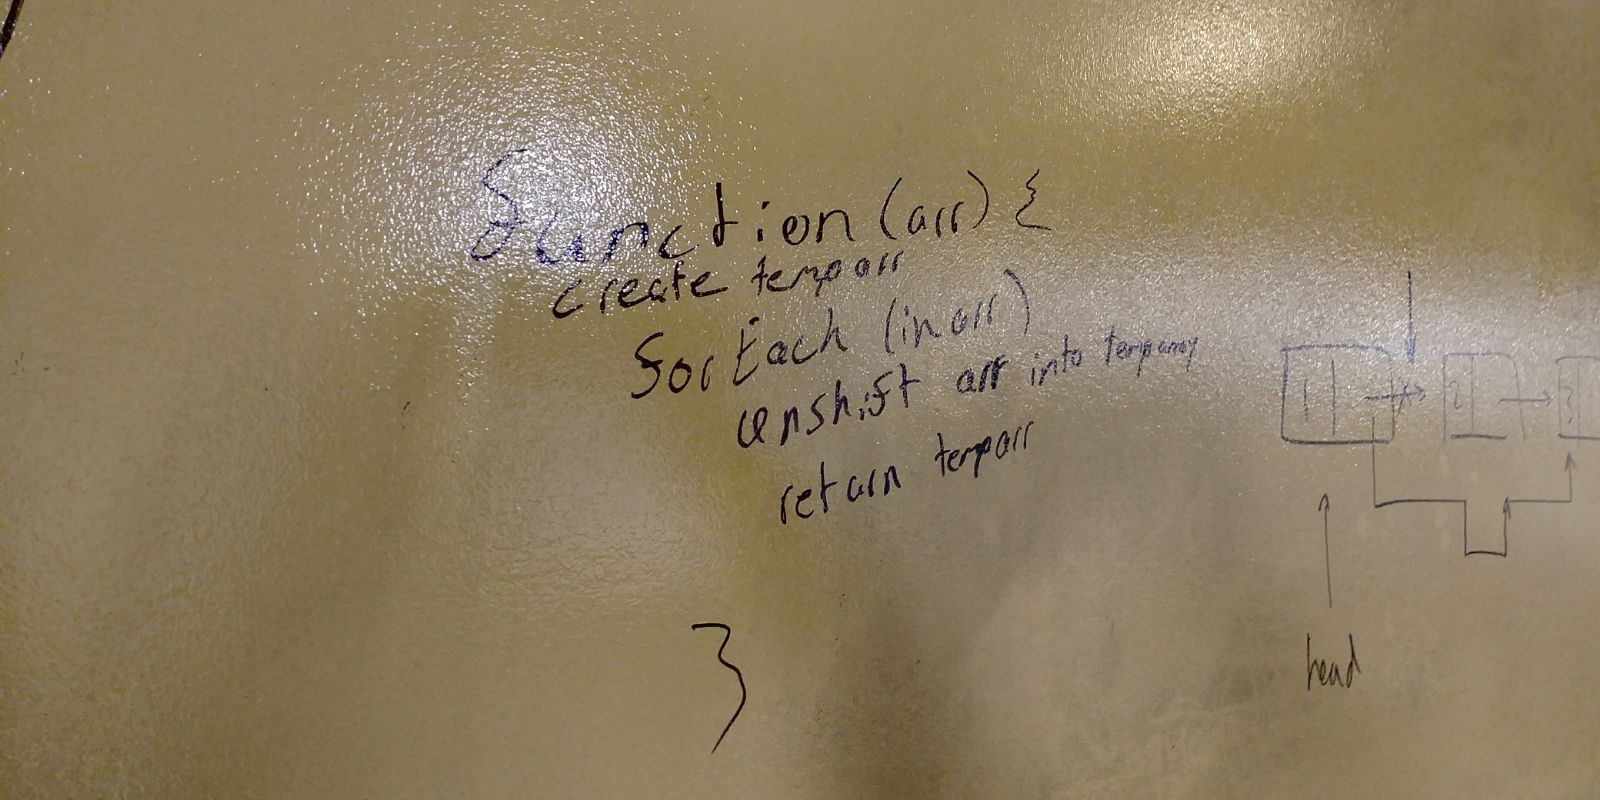 function (arr) {
create temparr
forEach (in arr)
unshift arr into temparray
return temparr
}
1 2 3
head